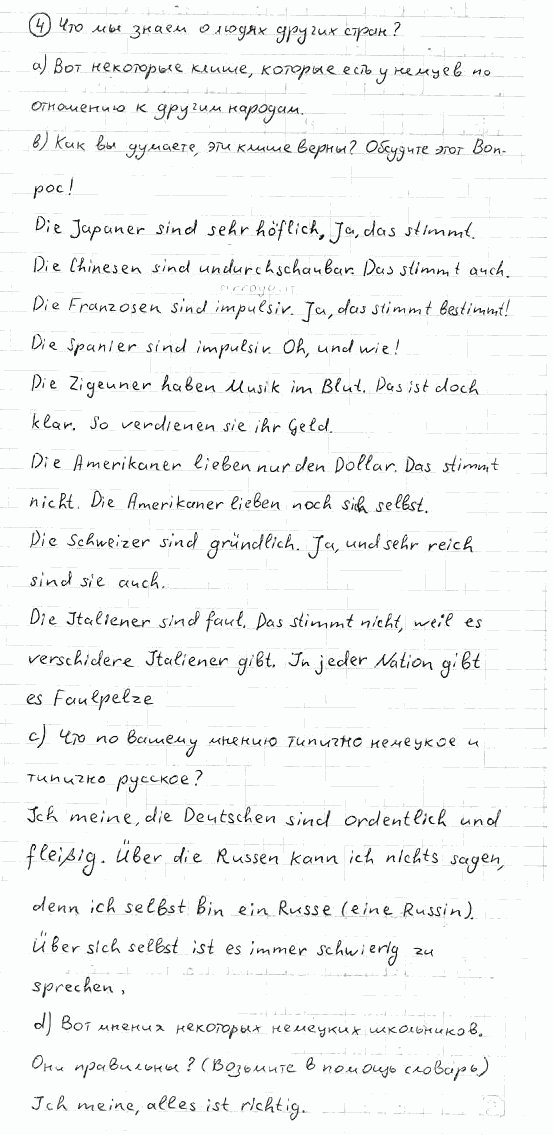 4 Что мы знаем о людях других стран?
а) Вот некоторые клише, которые есть у немцев по
отношению к другим народам.
в) Как вы думаете, эти клише верны? Обсудите этот воп-
рос!
Die Japaner sind sehr höflich, Ja, das stimmt.
Die Chinesen sind undurchschaubar. Das stimmt auch.
Die Franzosen sind impulsiv. Ja, das stimmt bestimmt!
Die Spanier sind impulsiv. Oh, und wie!
Die Zigeuner haben Musik im Blut. Das ist doch
klar. So verdienen sie ihr Geld.
Die Amerikaner lieben nur den Dollar. Das stimmt
nicht. Die Amerikaner lieben noch sich selbst.
Die Schweizer sind gründlich. Ja, und sehr reich
sind sie auch.
Die Italiener sind faul. Das stimmt nicht, weil es
verschidere Italiener gibt. In jeder Nation gibt
es Faulpelze
с) Что по вашему мнению типично немецкое и
типично русское?
Ich meine, die Deutschen sind ordentlich und
fleißig. Über die Russen kann ich nichts sagen,
denn ich selbst bin ein Russe (eine Russin).
Über sich selbst ist es immer schwierig zu
sprechen,
d) Вот мнения некоторых немецких школьников.
Они правильны? (Возьмите в помощь словарь)
Ich meine, alles ist richtig.